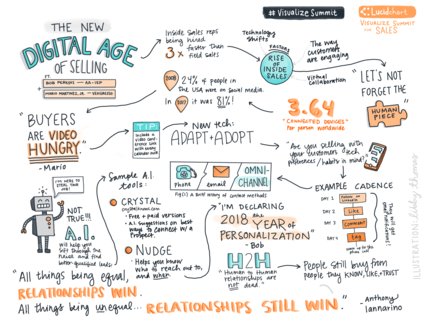 # Visualize Summit
Lucidchart
VISUALIZE SUMMIT
for SALES
THE NEW
DIGITAL AGE
OF SELLING
BOB PERKINS — AA-ISP
MARIO MARTINEZ, JR. — VENGRESO
Inside Sales reps
being hired
3x faster than
field sales
Technology
Shifts
FACTORS
RISE OF
INSIDE
SALES
The way
customers
are engaging
Virtual
Collaboration
2008
24% of people in
the USA were on social media.
In 2017 it was 81%!
3.64
"CONNECTED DEVICES"
per person worldwide
"LET'S
NOT FORGET
THE
HUMAN
PIECE"
"BUYERS
ARE VIDEO
HUNGRY."
- Mario
TIP:
Include a
video
link
with every
calendar
New tech:
ADAPT + ADOPT
"Are you selling with
your customers' tech
preferences/habits in mind?"
phone
email
OMNI-
CHANNEL
I'M HERE TO
STEAL YOUR
JOB!
NOT
TRUE!!!
A.I.
will help you
sift through
the
and find
better-qualified leads
Sample A.I.
tools:
CRYSTAL
• Free + paid versions
• A.I. suggestions on best
ways to connect w/a
prospect.
NUDGE
• Helps you know
who to reach out to,
and when
"I'M DECLARING
2018 the
YEAR OF
PERSONALIZATION"
- Bob
H2H
"Human to Human
relationships are
not dead."
EXAMPLE CADENCE
DAY 1
DAY 2
Like
DAY 3
Comment
DAY 4
tag
They will
get
People still buy from
people they KNOW, LIKE, + TRUST
"All things being equal,
RELATIONSHIPS WIN.
All things being unequal... RELATIONSHIPS STILL WIN."
- anthony
Iannarino
ILLUSTRATION: